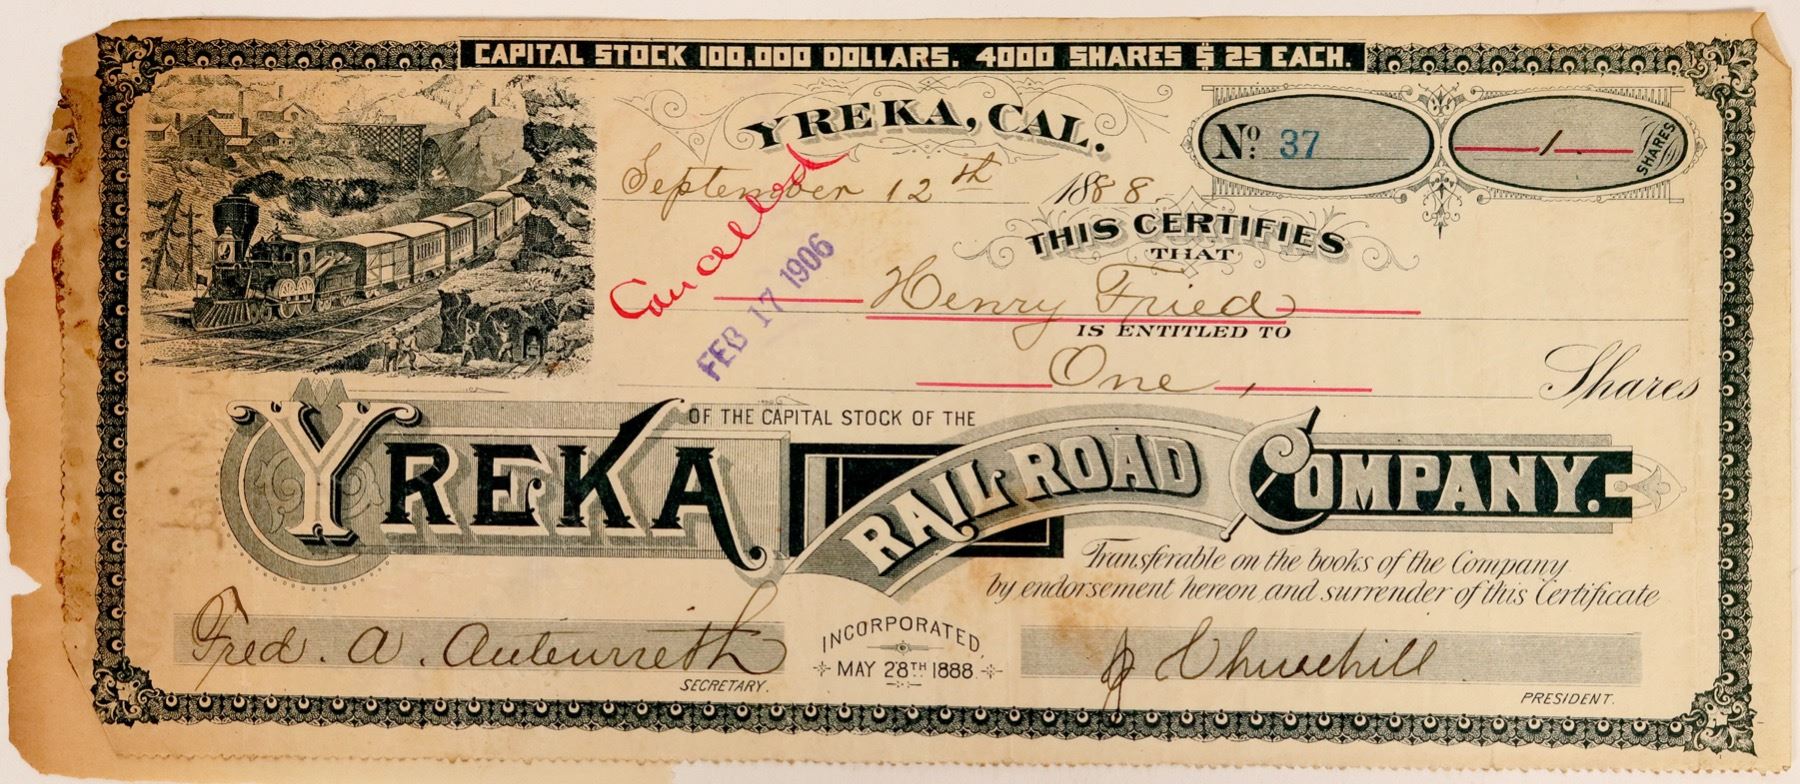 CAPITAL STOCK 100.000 DOLLARS. 4000 SHARES $ 25 EACH.
YREKA, CAL.
No. 37
1 SHARES
September 12th 1888.
Cancelled
FEB 17 1906
THIS CERTIFIES
THAT
Henry Fried
IS ENTITLED TO
One, Shares
OF THE CAPITAL STOCK OF THE
YREKA RAILROAD COMPANY.
Transferable on the books of the Company
by endorsement hereon and surrender of this Certificate
Fred. A. Autenrieth
SECRETARY.
INCORPORATED,
MAY 28TH 1888
J Churchill
PRESIDENT.